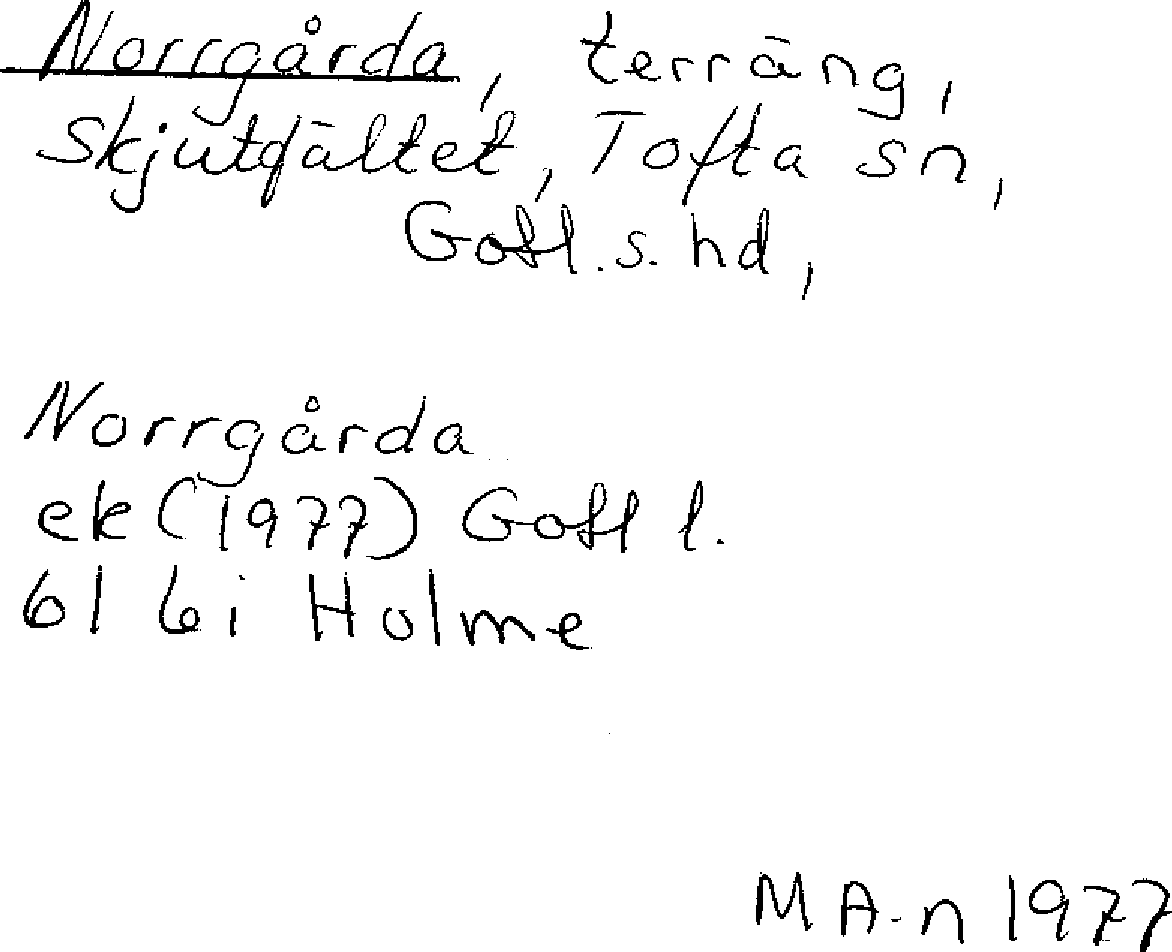 Norrgårda, terräng,
Skjutfältet, Tofta sn,
Gotl. s. hd,
Norrgårda
ek (1977) Gotl l.
6I 6i Holme
MA-n 1977